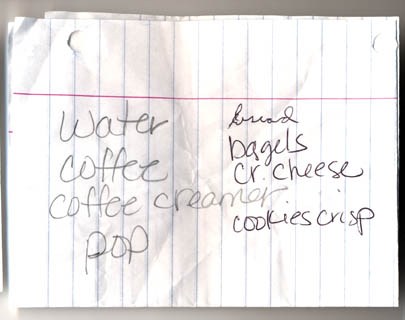 water
coffee
coffee creamer
pop
bread
bagels
cr. cheese
cookiescrisp